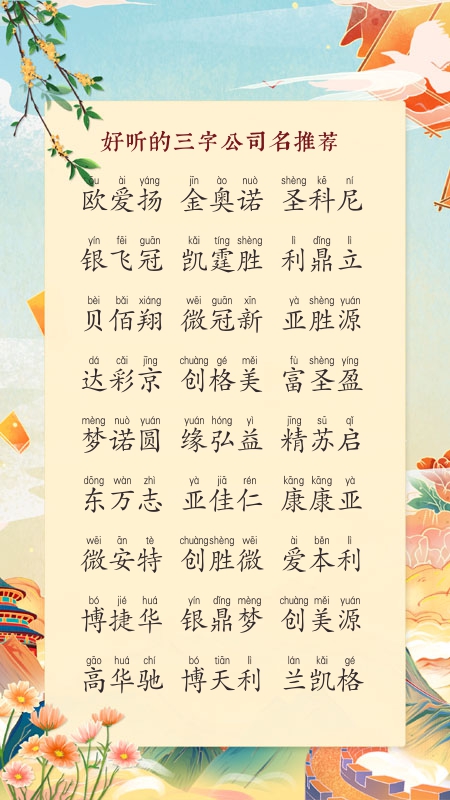 好听的三字公司名推荐
ōu ài yáng jīn ào nuò shèng kē ní
欧爱扬 金奥诺 圣科尼
yín fēi guān kǎi tíng shèng lì dǐng lì
银飞冠 凯霆胜 利鼎立
bèi bǎi xiáng wēi guān xīn yà shèng yuán
贝佰翔 微冠新 亚胜源
dá cǎi jīng chuàng gé měi fù shèng yíng
达彩京 创格美 富圣盈
mèng nuò yuán yuán hóng yì jīng sū qǐ
梦诺圆 缘弘益 精苏启
dōng wàn zhì yà jiā rén kāng kāng yà
东万志 亚佳仁 康康亚
wēi ān tè chuàng shèng wēi ài běn lì
微安特 创胜微 爱本利
bó jié huá yín dǐng mèng chuàng měi yuán
博捷华 银鼎梦 创美源
gāo huá chí bó tiān lì lán kǎi gé
高华驰 博天利 兰凯格